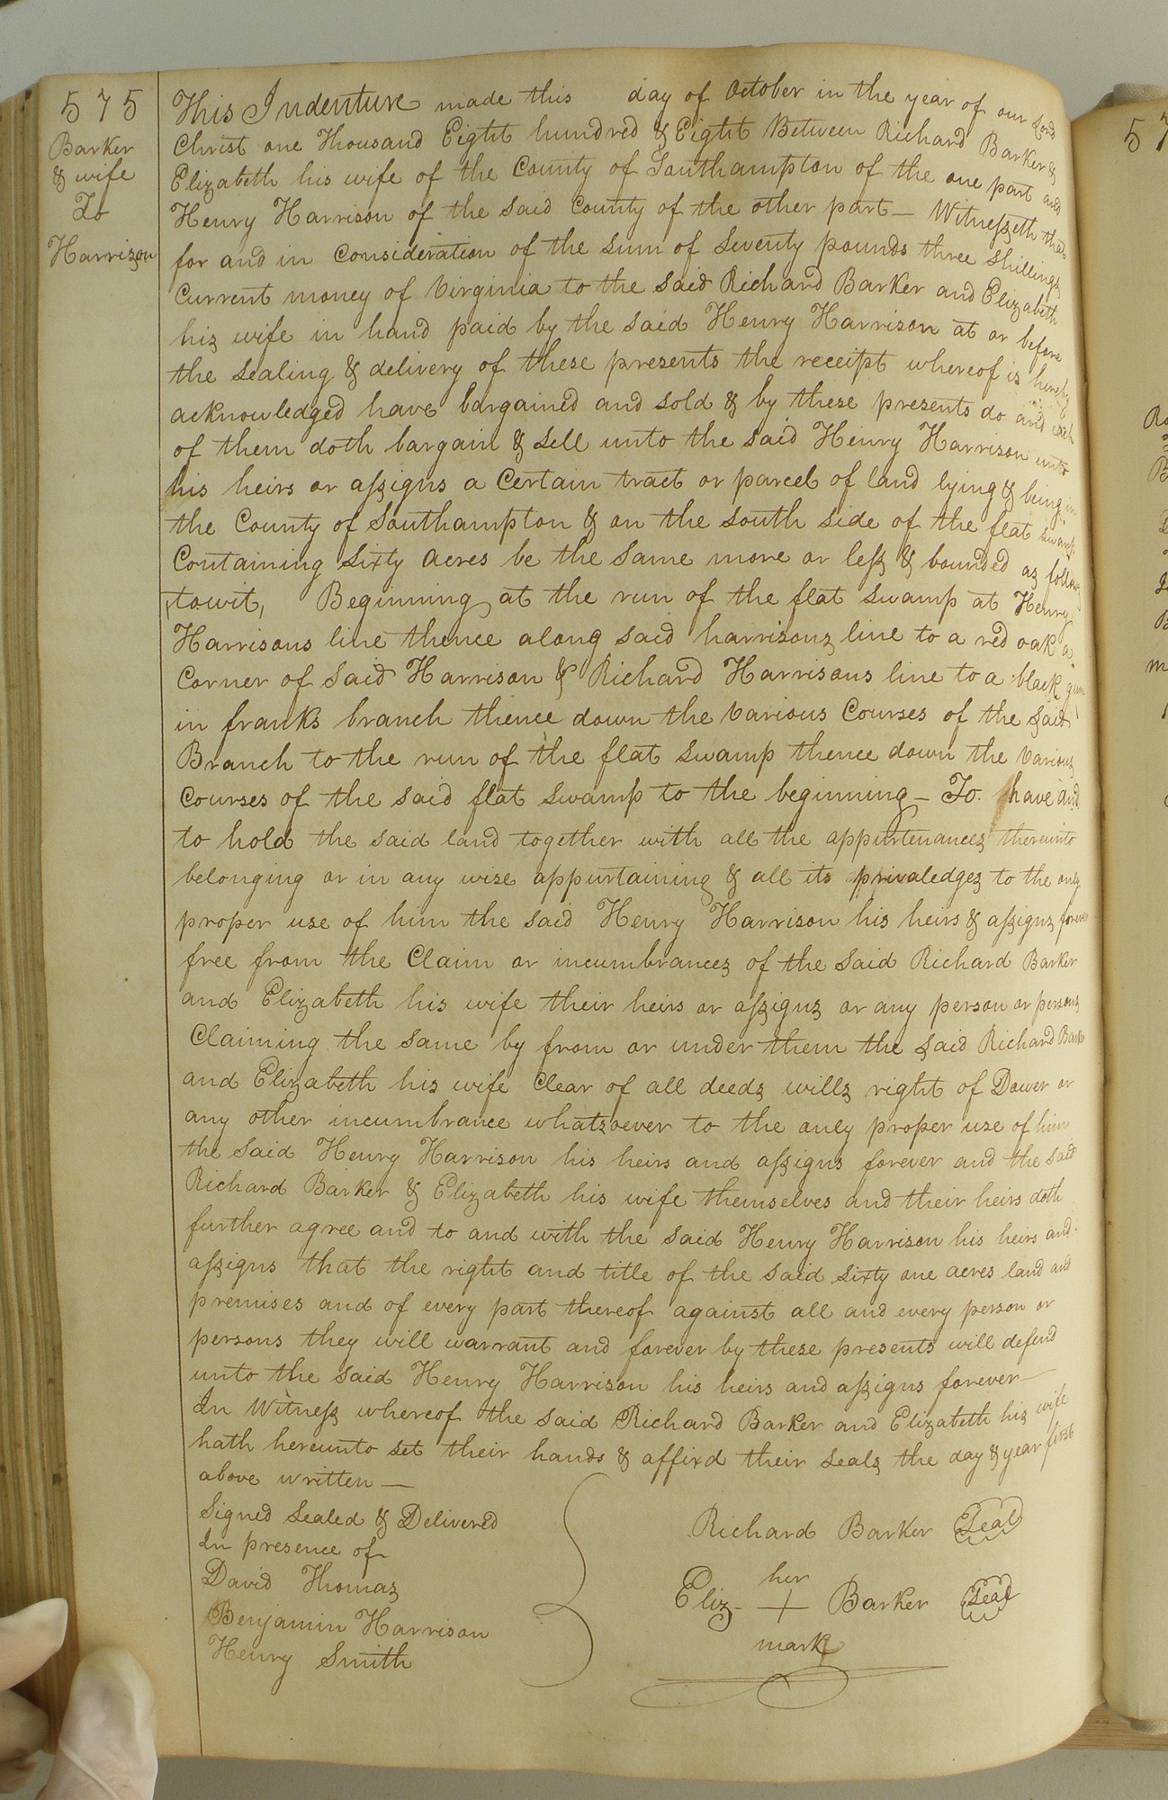 575
Barker
& wife
To
Harrison
This Indenture made this day of October in the year of our Lord
Christ one Thousand Eight hundred & Eight Between Richard Barker &
Elizabeth his wife of the County of Southampton of the one part and
Henry Harrison of the said County of the other part — Witnesseth that
for and in Consideration of the sum of Seventy pounds three Shillings
Current money of Virginia to the said Richard Barker and Elizabeth
his wife in hand paid by the said Henry Harrison at or before
the sealing & delivery of these presents the receipt whereof is hereby
acknowledged have bargained and sold & by these presents do and each
of them doth bargain & sell unto the said Henry Harrison unto
his heirs or assigns a Certain tract or parcel of land lying & being in
the County of Southampton & on the south side of the flat swamp
Containing sixty acres be the same more or less & bounded as follows
towit, Beginning at the run of the flat swamp at Henry
Harrisons line thence along said harrisons line to a red oak a
Corner of said Harrison & Richard Harrisons line to a black gum
in franks branch thence down the various Courses of the said
Branch to the run of the flat swamp thence down the various
Courses of the said flat swamp to the beginning — To have and
to hold the said land together with all the appurtenances thereunto
belonging or in any wise appurtaining & all its privaledges to the only
proper use of him the said Henry Harrison his heirs & assigns forever
free from the Claim or incumbrances of the said Richard Barker
and Elizabeth his wife their heirs or assigns or any person or persons
Claiming the same by from or under them the said Richard Barker
and Elizabeth his wife Clear of all deeds wills right of Dower or
any other incumbrance whatsoever to the only proper use of him
the said Henry Harrison his heirs and assigns forever and the said
Richard Barker & Elizabeth his wife themselves and their heirs doth
further agree and to and with the said Henry Harrison his heirs and
assigns that the right and title of the said sixty one acres land and
premises and of every part thereof against all and every person or
persons they will warrant and forever by these presents will defend
unto the said Henry Harrison his heirs and assigns forever —
In Witness whereof the said Richard Barker and Elizabeth his wife
hath hereunto set their hands & affixd their seals the day & year first
above written —
Signed Sealed & Delivered
In presence of
David Thomas
Benjamin Harrison
Henry Smith
Richard Barker Seal
her
Eliz. + Barker Seal
mark